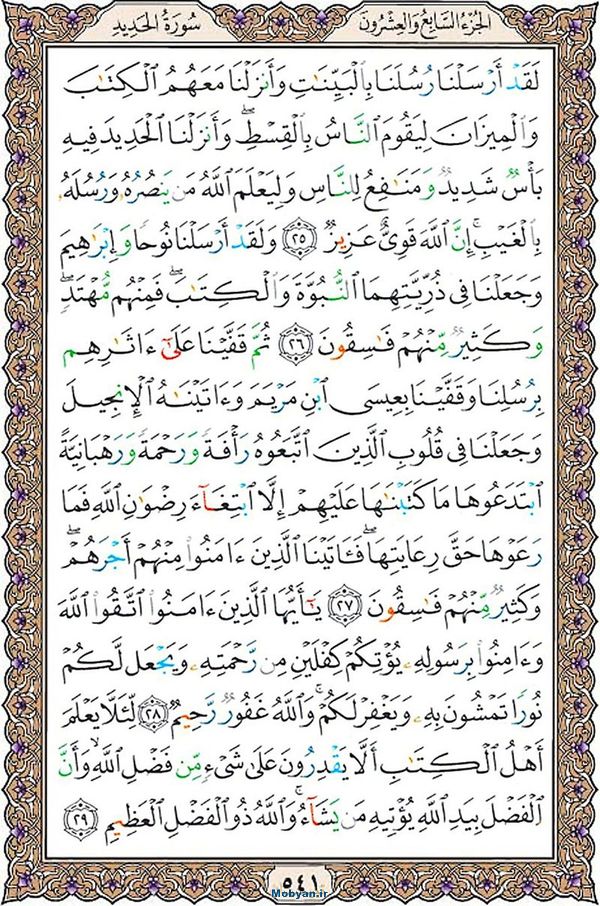 الجُزءُ السَّابِعُ وَالعِشْرُونَ
سُورَةُ الحَدِيدِ
لَقَدْ أَرْسَلْنَا رُسُلَنَا بِالْبَيِّنَاتِ وَأَنزَلْنَا مَعَهُمُ الْكِتَابَ
وَالْمِيزَانَ لِيَقُومَ النَّاسُ بِالْقِسْطِ ۖ وَأَنزَلْنَا الْحَدِيدَ فِيهِ
بَأْسٌ شَدِيدٌ وَمَنَافِعُ لِلنَّاسِ وَلِيَعْلَمَ اللَّهُ مَن يَنصُرُهُ وَرُسُلَهُ
بِالْغَيْبِ ۚ إِنَّ اللَّهَ قَوِيٌّ عَزِيزٌ ٢٥ وَلَقَدْ أَرْسَلْنَا نُوحًا وَإِبْرَاهِيمَ
وَجَعَلْنَا فِي ذُرِّيَّتِهِمَا النُّبُوَّةَ وَالْكِتَابَ ۖ فَمِنْهُم مُّهْتَدٍ ۖ
وَكَثِيرٌ مِّنْهُمْ فَاسِقُونَ ٢٦ ثُمَّ قَفَّيْنَا عَلَىٰ ءَاثَارِهِم
بِرُسُلِنَا وَقَفَّيْنَا بِعِيسَى ابْنِ مَرْيَمَ وَءَاتَيْنَاهُ الْإِنجِيلَ
وَجَعَلْنَا فِي قُلُوبِ الَّذِينَ اتَّبَعُوهُ رَأْفَةً وَرَحْمَةً وَرَهْبَانِيَّةً
ابْتَدَعُوهَا مَا كَتَبْنَاهَا عَلَيْهِمْ إِلَّا ابْتِغَاءَ رِضْوَانِ اللَّهِ فَمَا
رَعَوْهَا حَقَّ رِعَايَتِهَا ۖ فَـَٔاتَيْنَا الَّذِينَ ءَامَنُوا مِنْهُمْ أَجْرَهُمْ ۖ
وَكَثِيرٌ مِّنْهُمْ فَاسِقُونَ ٢٧ يَا أَيُّهَا الَّذِينَ ءَامَنُوا اتَّقُوا اللَّهَ
وَءَامِنُوا بِرَسُولِهِ يُؤْتِكُمْ كِفْلَيْنِ مِن رَّحْمَتِهِ وَيَجْعَل لَّكُمْ
نُورًا تَمْشُونَ بِهِ وَيَغْفِرْ لَكُمْ ۚ وَاللَّهُ غَفُورٌ رَّحِيمٌ ٢٨ لِّئَلَّا يَعْلَمَ
أَهْلُ الْكِتَابِ أَلَّا يَقْدِرُونَ عَلَىٰ شَيْءٍ مِّن فَضْلِ اللَّهِ ۙ وَأَنَّ
الْفَضْلَ بِيَدِ اللَّهِ يُؤْتِيهِ مَن يَشَاءُ ۚ وَاللَّهُ ذُو الْفَضْلِ الْعَظِيمِ ٢٩
٥٤١
Mobyan.ir